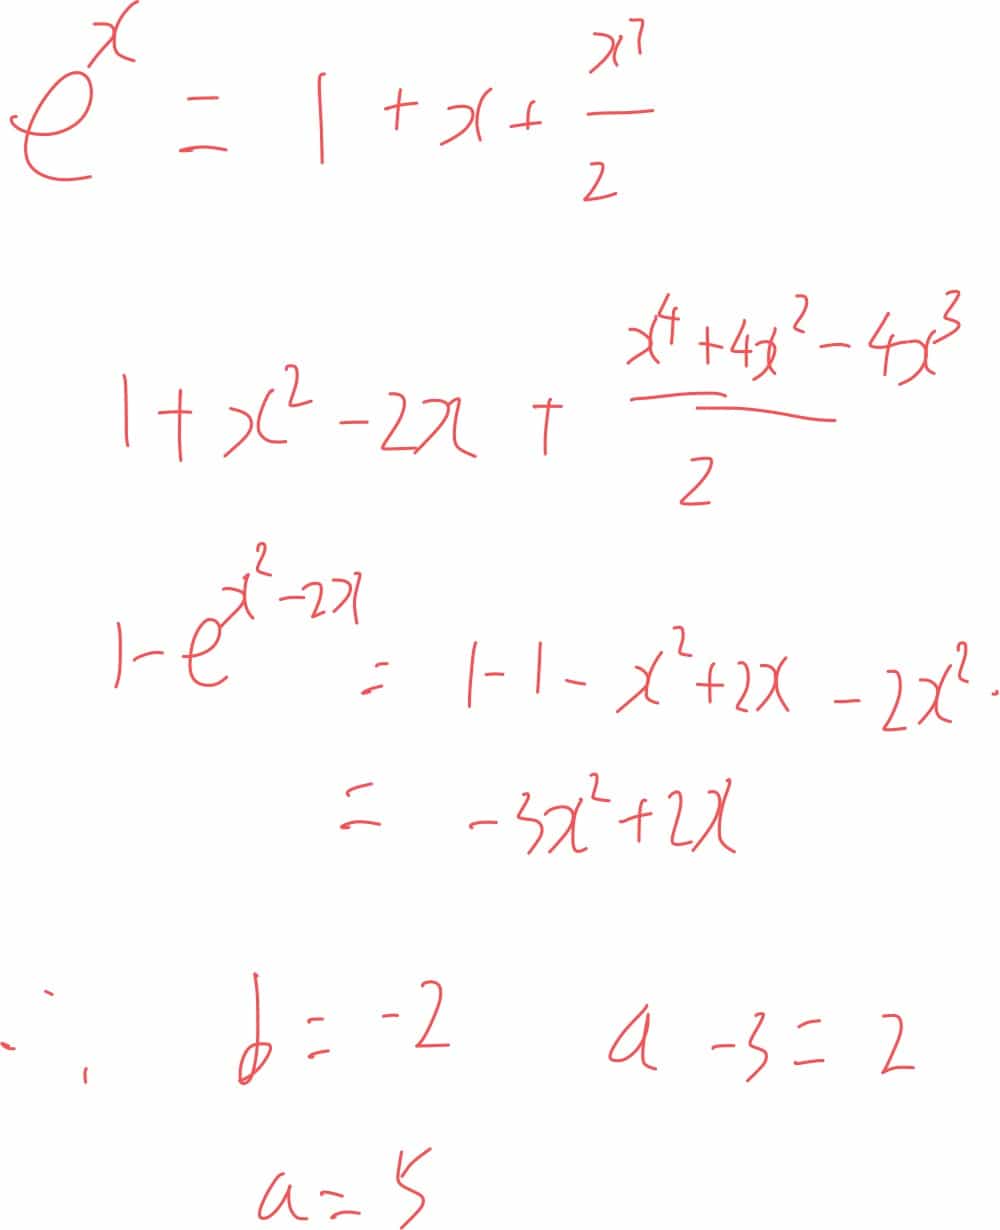 e^x = 1 + x + x^2/2
1 + x^2 - 2x + (x^4 + 4x^2 - 4x^3)/2
1 - e^(x^2 - 2x) = 1 - 1 - x^2 + 2x - 2x^2.
= -3x^2 + 2x
∴ b = -2 a - 3 = 2
a = 5